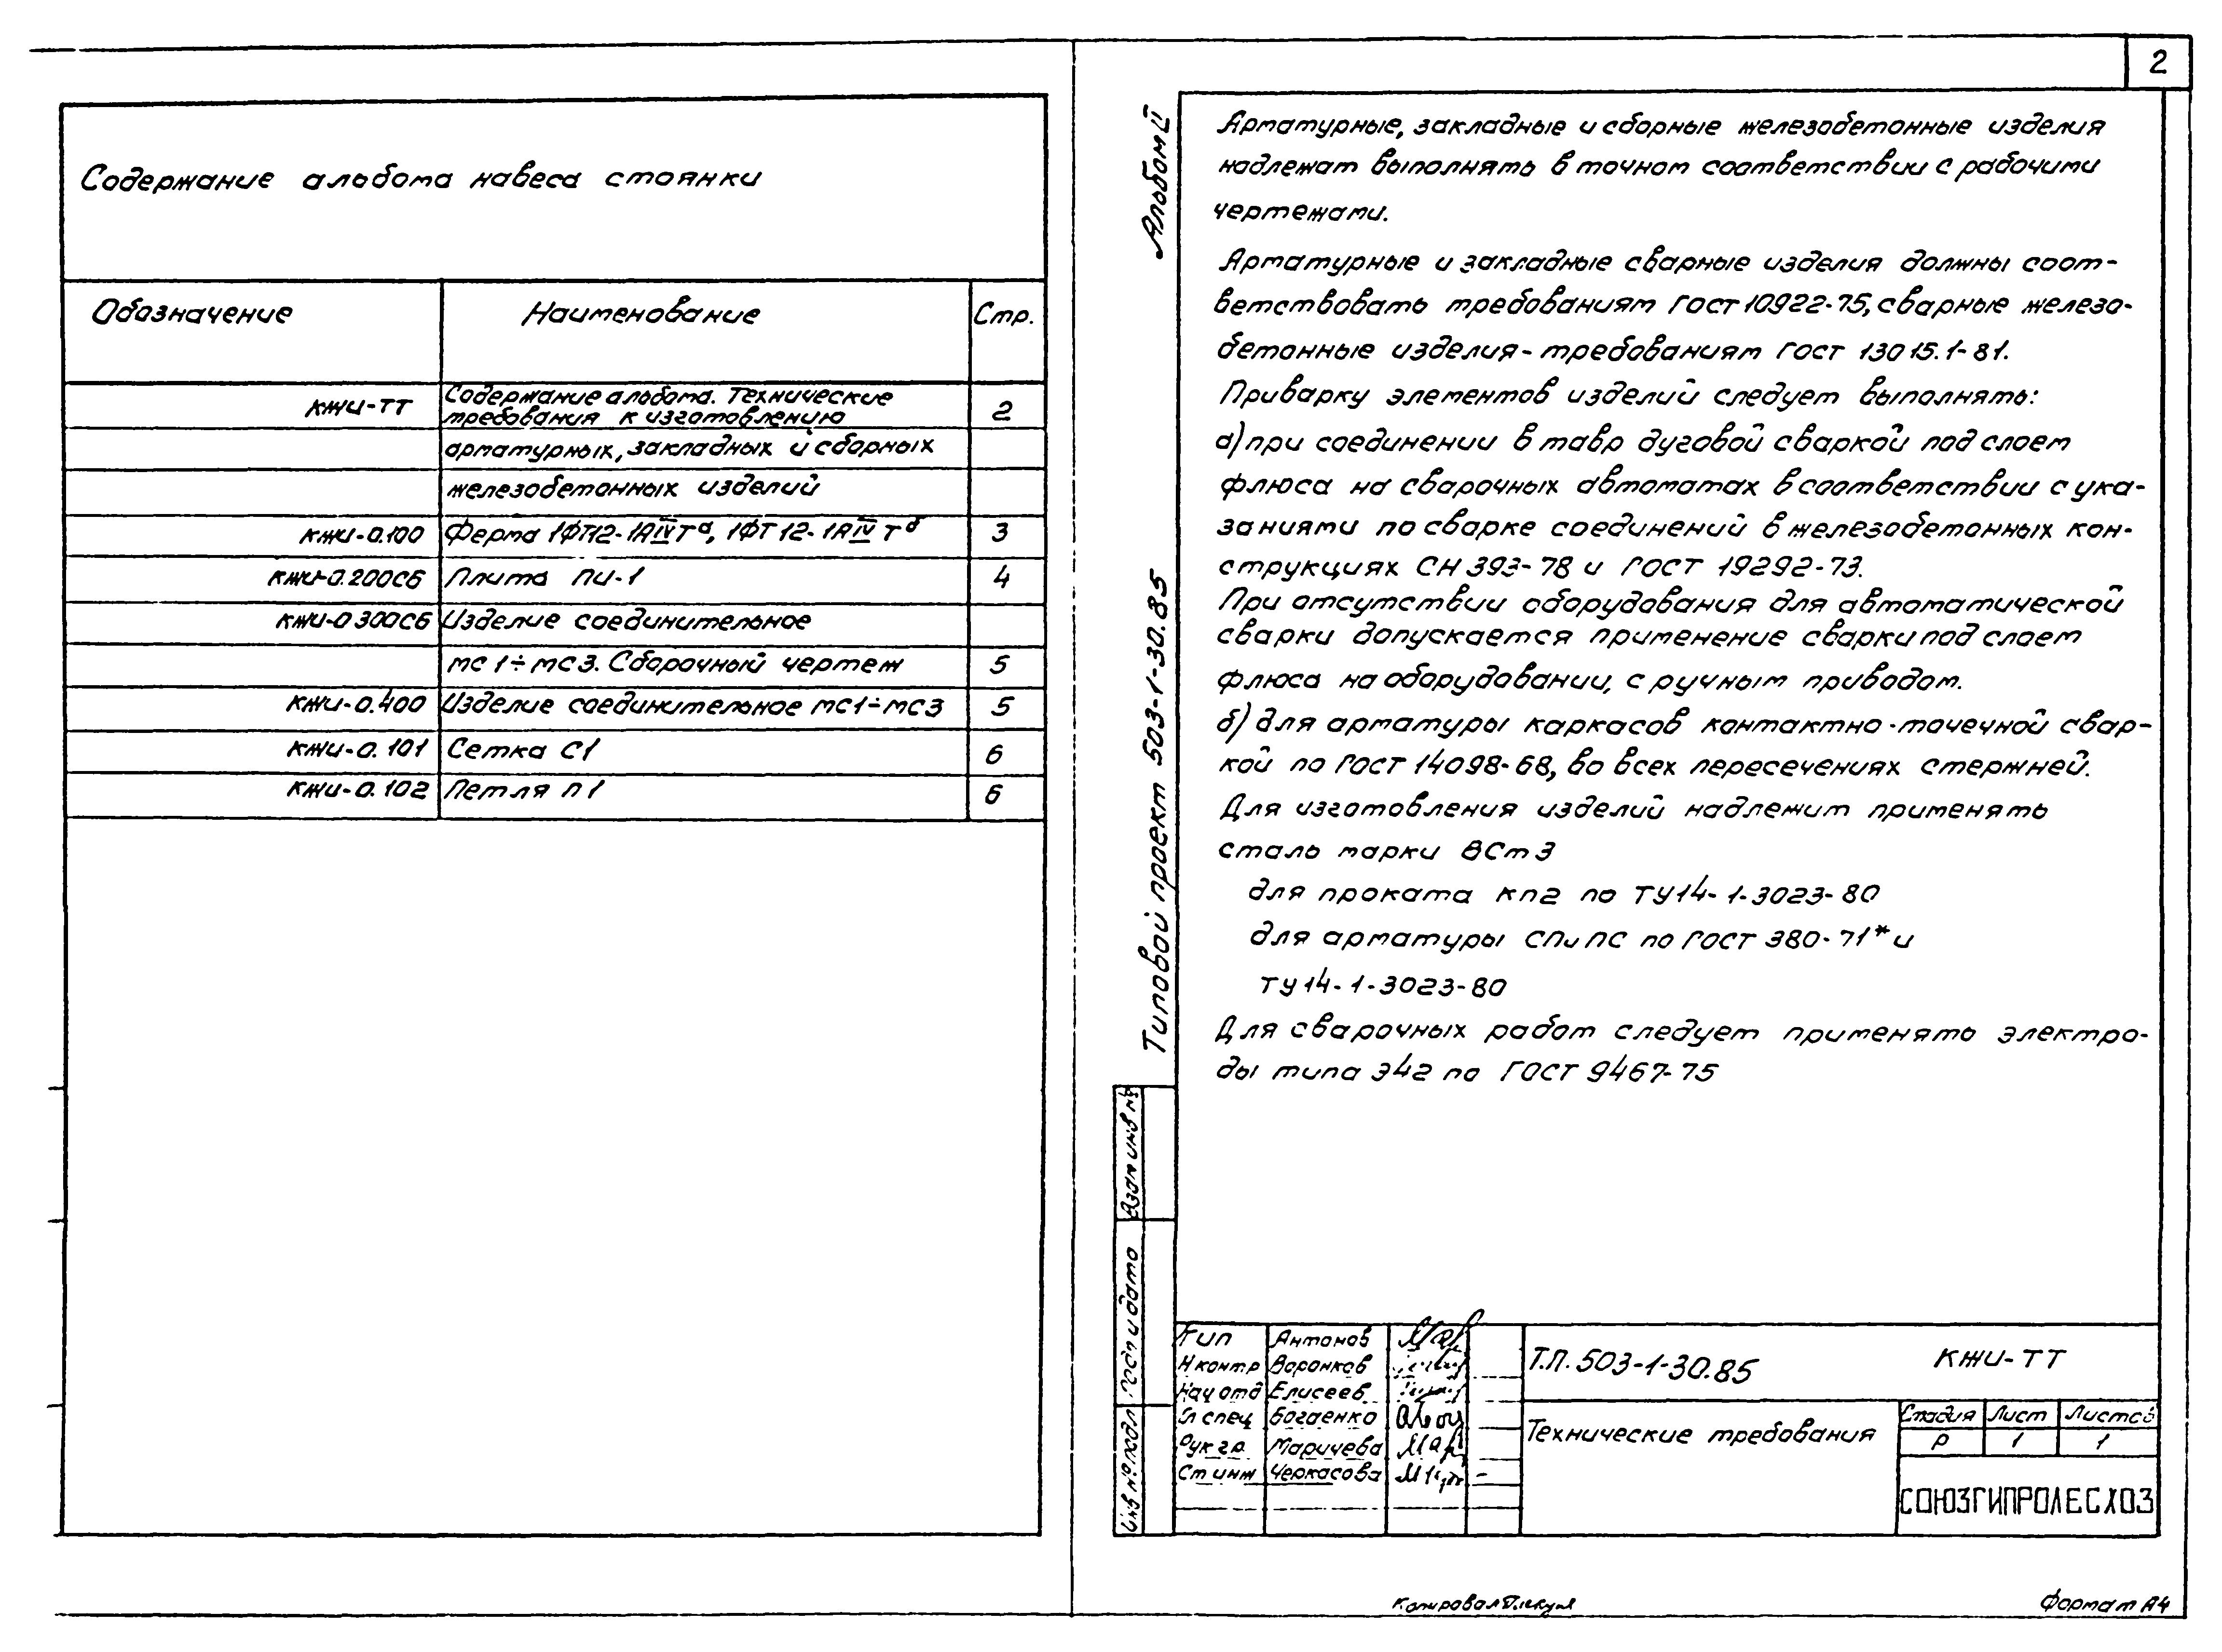 2
Содержание альбома навеса стоянки
Обозначение Наименование Стр.
КЖИ-ТТ Содержание альбома. Технические
требования к изготовлению 2
арматурных, закладных и сборных
железобетонных изделий
КЖИ-0.100 Ферма 1ФТ12-1АIVТа, 1ФТ12-1АIVТб 3
КЖИ-0.200СБ Плита ПИ-1 4
КЖИ-0300СБ Изделие соединительное
МС1÷МС3. Сборочный чертеж 5
КЖИ-0.400 Изделие соединительное МС1÷МС3 5
КЖИ-0.101 Сетка С1 6
КЖИ-0.102 Петля П1 6
Альбом II
Типовой проект 503-1-30.85
Арматурные, закладные и сборные железобетонные изделия
надлежат выполнять в точном соответствии с рабочими
чертежами.
Арматурные и закладные сварные изделия должны соот-
ветствовать требованиям ГОСТ 10922-75, сварные железо-
бетонные изделия-требованиям ГОСТ 13015.1-81.
Приварку элементов изделий следует выполнять:
а) при соединении в тавр дуговой сваркой под слоем
флюса на сварочных автоматах в соответствии с ука-
заниями по сварке соединений в железобетонных кон-
струкциях СН 393-78 и ГОСТ 19292-73.
При отсутствии оборудования для автоматической
сварки допускается применение сварки под слоем
флюса на оборудовании, с ручным приводом.
б) для арматуры каркасов контактно-точечной свар-
кой по ГОСТ 14098-68, во всех пересечениях стержней.
Для изготовления изделий надлежит применять
сталь марки ВСт3
для проката кп2 по ТУ14-1-3023-80
для арматуры СП и ПС по ГОСТ 380-71* и
ТУ14-1-3023-80
Для сварочных работ следует применять электро-
ды типа Э42 по ГОСТ 9467-75
Взам инв №
Подп и дата
Инв № подл
Гип Антонов
Н контр Воронков
Нач отд Елисеев
Гл спец Богаенко
Рук гр Маричева
Ст инж Черкасова
Т.П. 503-1-30.85 КЖИ-ТТ
Технические требования
Стадия Лист Листов
Р 1 1
СОЮЗГИПРОЛЕСХОЗ
Копировал
Формат А4